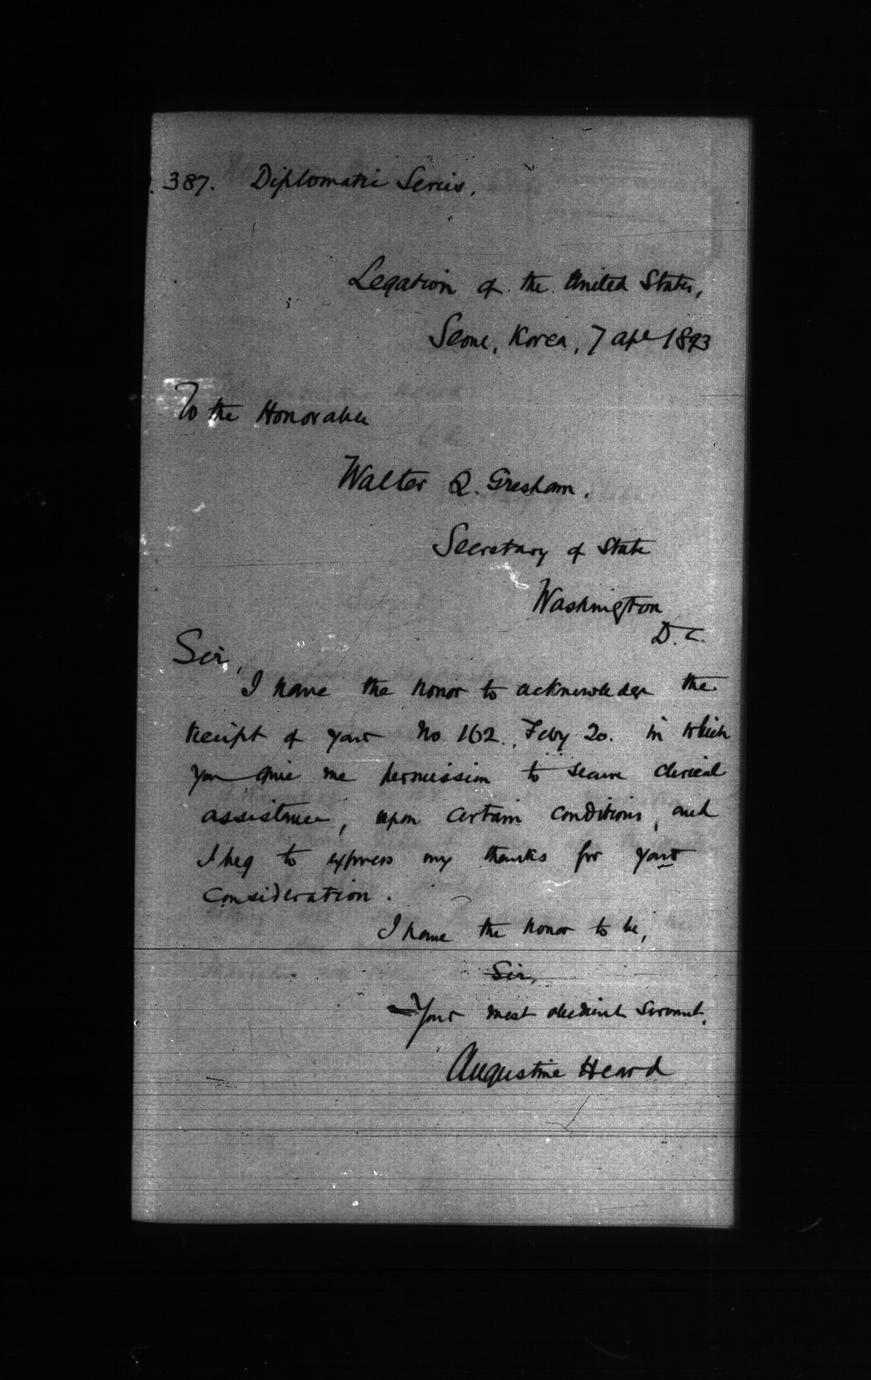 . 387. Diplomatic Series.
Legation of the United States,
Seoul, Korea, 7 Apl 1893
To the Honorable
Walter Q. Gresham.
Secretary of State
Washington
D. C.
Sir,
I have the honor to acknowledge the
receipt of your No. 162. Feby 20. in which
you give me permission to secure clerical
assistance, upon certain conditions, and
I beg to express my thanks for your
consideration.
I have the honor to be,
Sir,
Your most obedient servant,
Augustine Heard